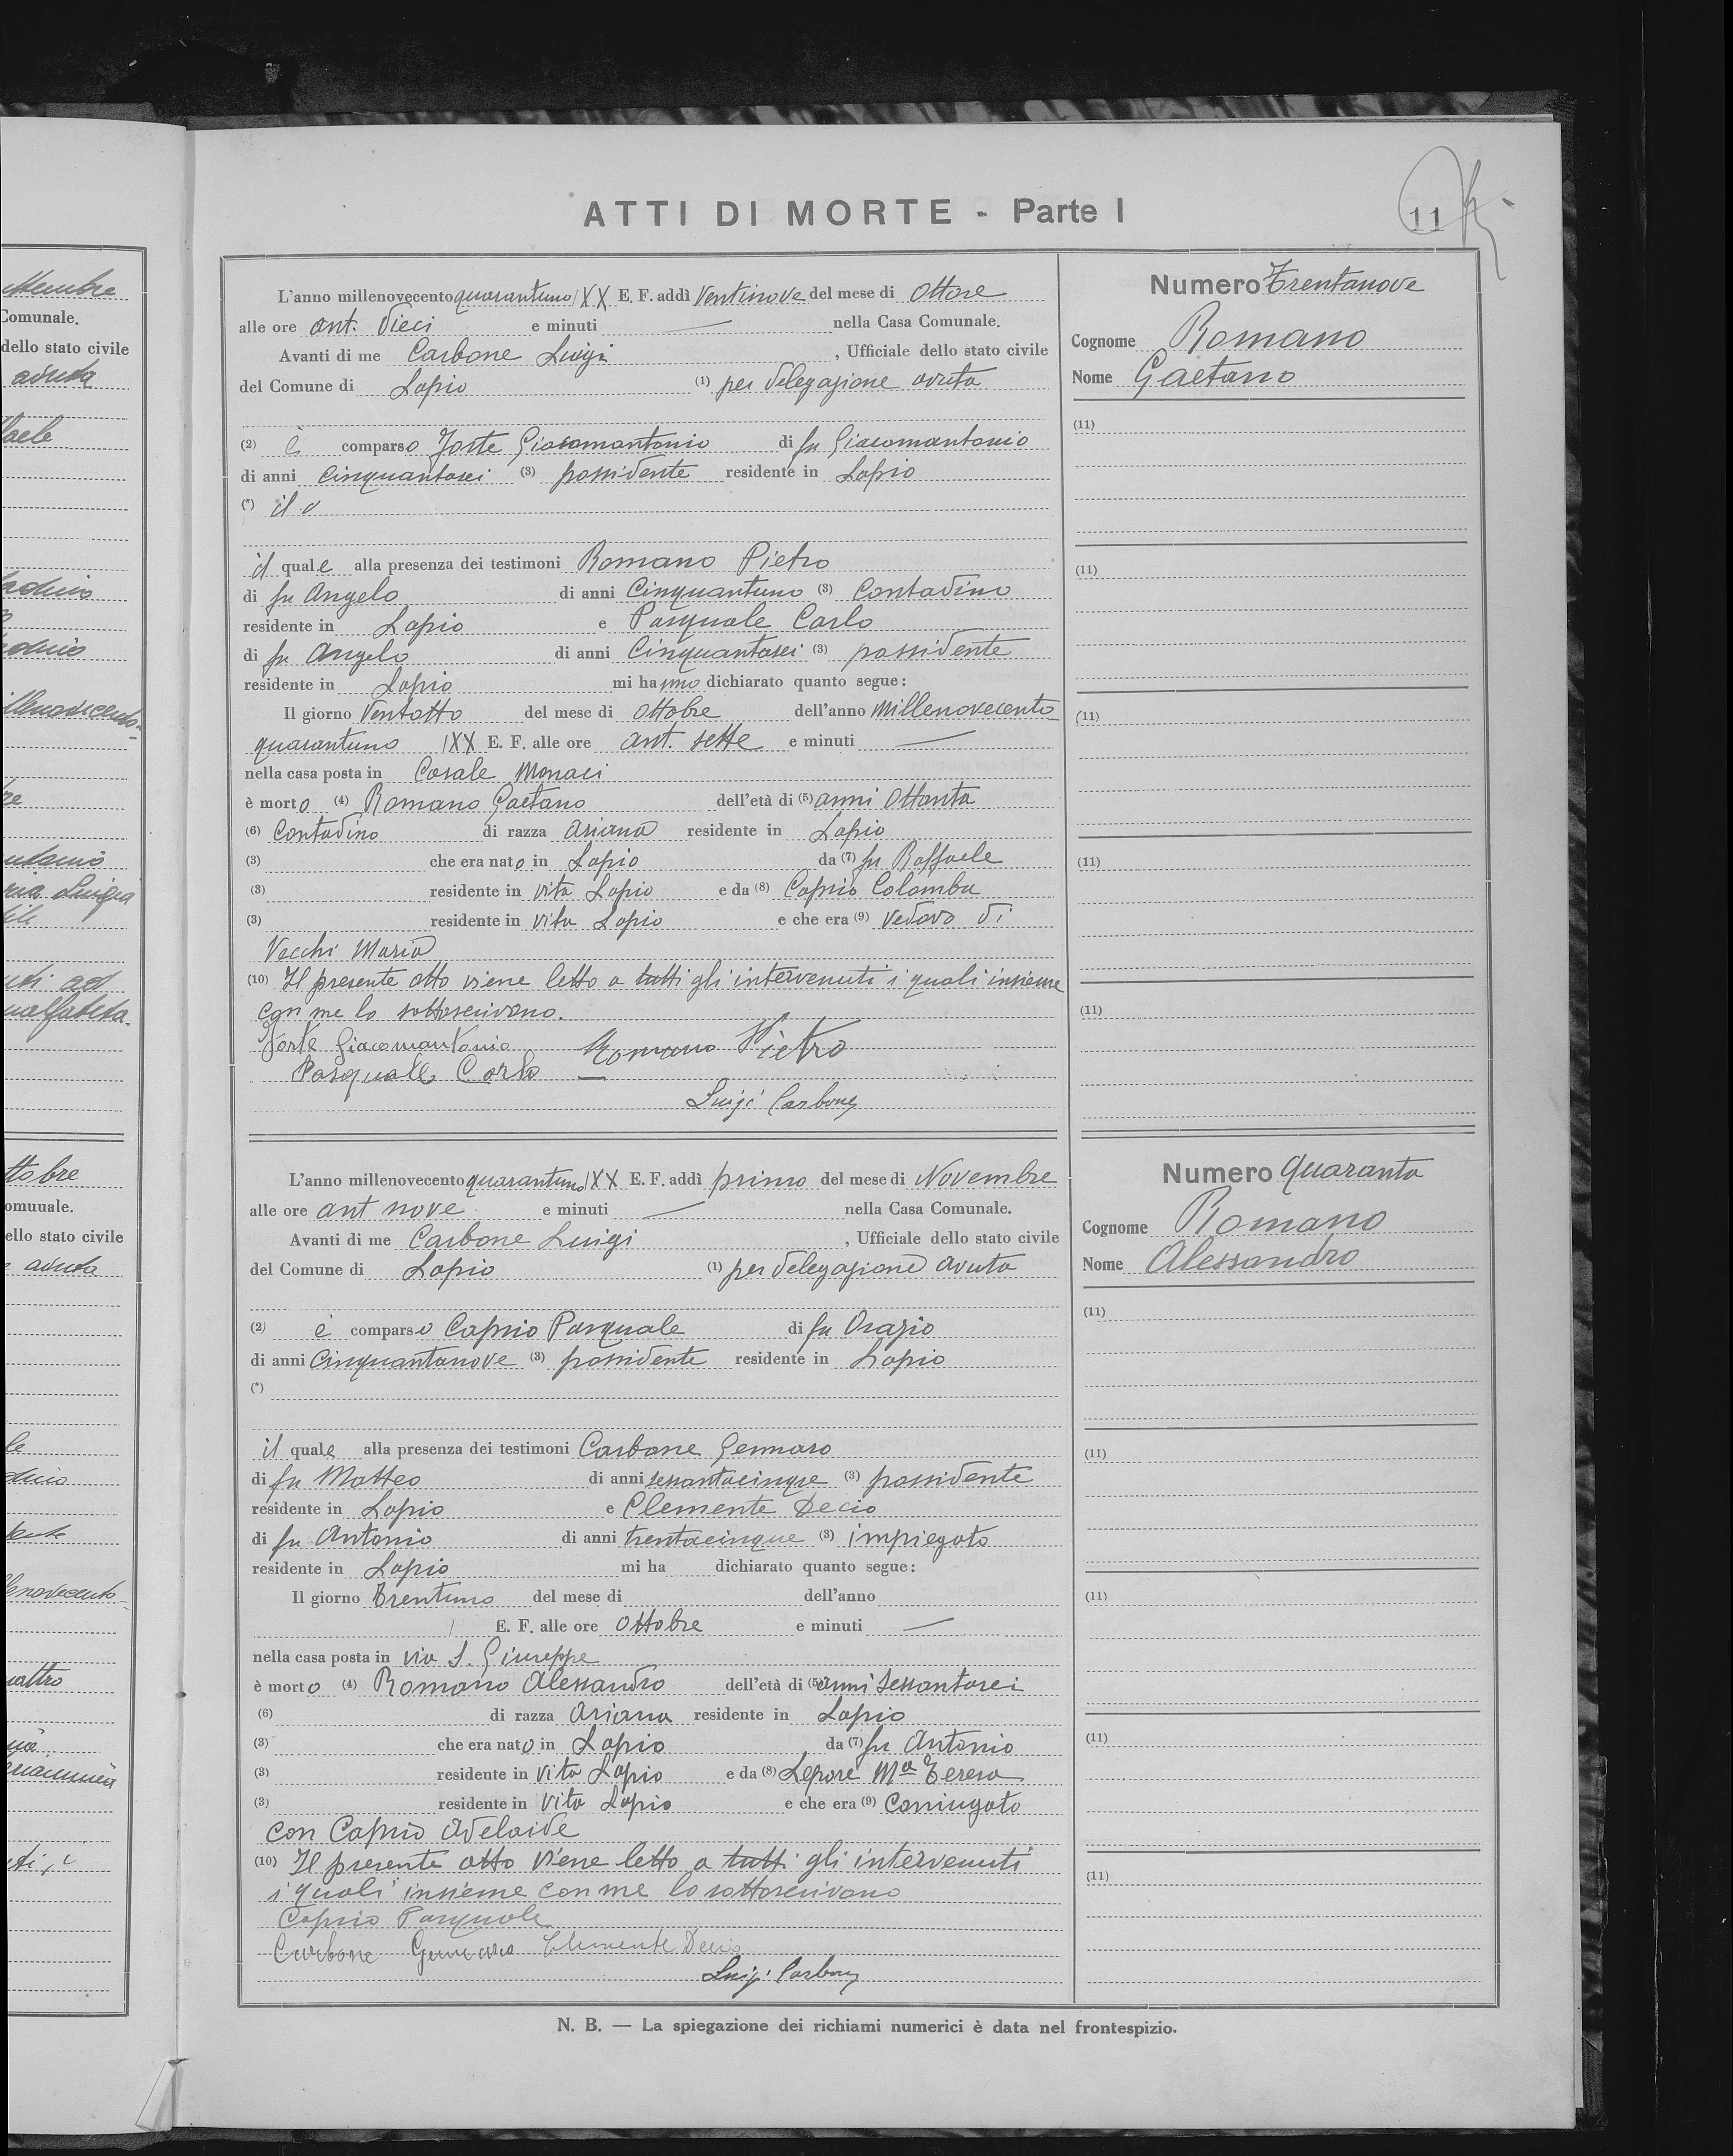 ttembre
Comunale.
dello stato civile
avuta
faele
illenovecento-
re
ria Luigia
uti ad
nalfabeta.
ttobre
omunale.
ello stato civile
avuta
le
lenovecento-
uattro
eti, i
ATTI DI MORTE - Parte I
11
L'anno millenovecento quarantuno / XX E. F. addì Ventinove del mese di Ottore
alle ore ant. Dieci e minuti — nella Casa Comunale.
Avanti di me Carbone Luigi , Ufficiale dello stato civile
del Comune di Lapio (1) per delegazione avuta
(2) è comparso Forte Giacomantonio di fu Giacomantonio
di anni Cinquantasei (3) possidente residente in Lapio
(*) il
il quale alla presenza dei testimoni Romano Pietro
di fu Angelo di anni Cinquantuno (3) Contadino
residente in Lapio e Pasquale Carlo
di fu Angelo di anni Cinquantasei (3) possidente
residente in Lapio mi hanno dichiarato quanto segue:
Il giorno Ventotto del mese di Ottobre dell'anno Millenovecento
quarantuno / XX E. F. alle ore ant. sette e minuti —
nella casa posta in Casale Monaci
è morto (4) Romano Gaetano dell'età di (5) anni Ottanta
(6) Contadino di razza Ariana residente in Lapio
(3) che era nato in Lapio da (7) fu Raffaele
(3) residente in vita Lapio e da (8) Caprio Colomba
(3) residente in vita Lapio e che era (9) vedovo di
Vecchi Maria
(10) Il presente atto viene letto a tutti gli intervenuti i quali insieme
con me lo sottoscrivono.
Forte Giacomantonio Romano Pietro
Pasquale Carlo
Luigi Carbone
Numero Trentanove
Cognome Romano
Nome Gaetano
(11)
(11)
(11)
(11)
(11)
L'anno millenovecento quarantuno / XX E. F. addì primo del mese di Novembre
alle ore ant nove e minuti — nella Casa Comunale.
Avanti di me Carbone Luigi , Ufficiale dello stato civile
del Comune di Lapio (1) per delegazione avuta
(2) è comparso Caprio Pasquale di fu Orazio
di anni Cinquantanove (3) possidente residente in Lapio
(*)
il quale alla presenza dei testimoni Carbone Gennaro
di fu Matteo di anni sessantacinque (3) possidente
residente in Lapio e Clemente Decio
di fu Antonio di anni trentacinque (3) impiegato
residente in Lapio mi ha dichiarato quanto segue:
Il giorno Trentuno del mese di dell'anno
/ E. F. alle ore Ottobre e minuti —
nella casa posta in via S. Giuseppe
è morto (4) Romano Alessandro dell'età di (5) anni sessantasei
(6) di razza Ariana residente in Lapio
(3) che era nato in Lapio da (7) fu Antonio
(3) residente in vita Lapio e da (8) Lepore Ma Teresa
(3) residente in vita Lapio e che era (9) Coniugato
con Caprio Adelaide
(10) Il presente atto viene letto a tutti gli intervenuti
i quali insieme con me lo sottoscrivono
Caprio Pasquale
Carbone Gennaro Clemente Decio
Luigi Carbone
Numero quaranta
Cognome Romano
Nome Alessandro
(11)
(11)
(11)
(11)
(11)
N. B. — La spiegazione dei richiami numerici è data nel frontespizio.